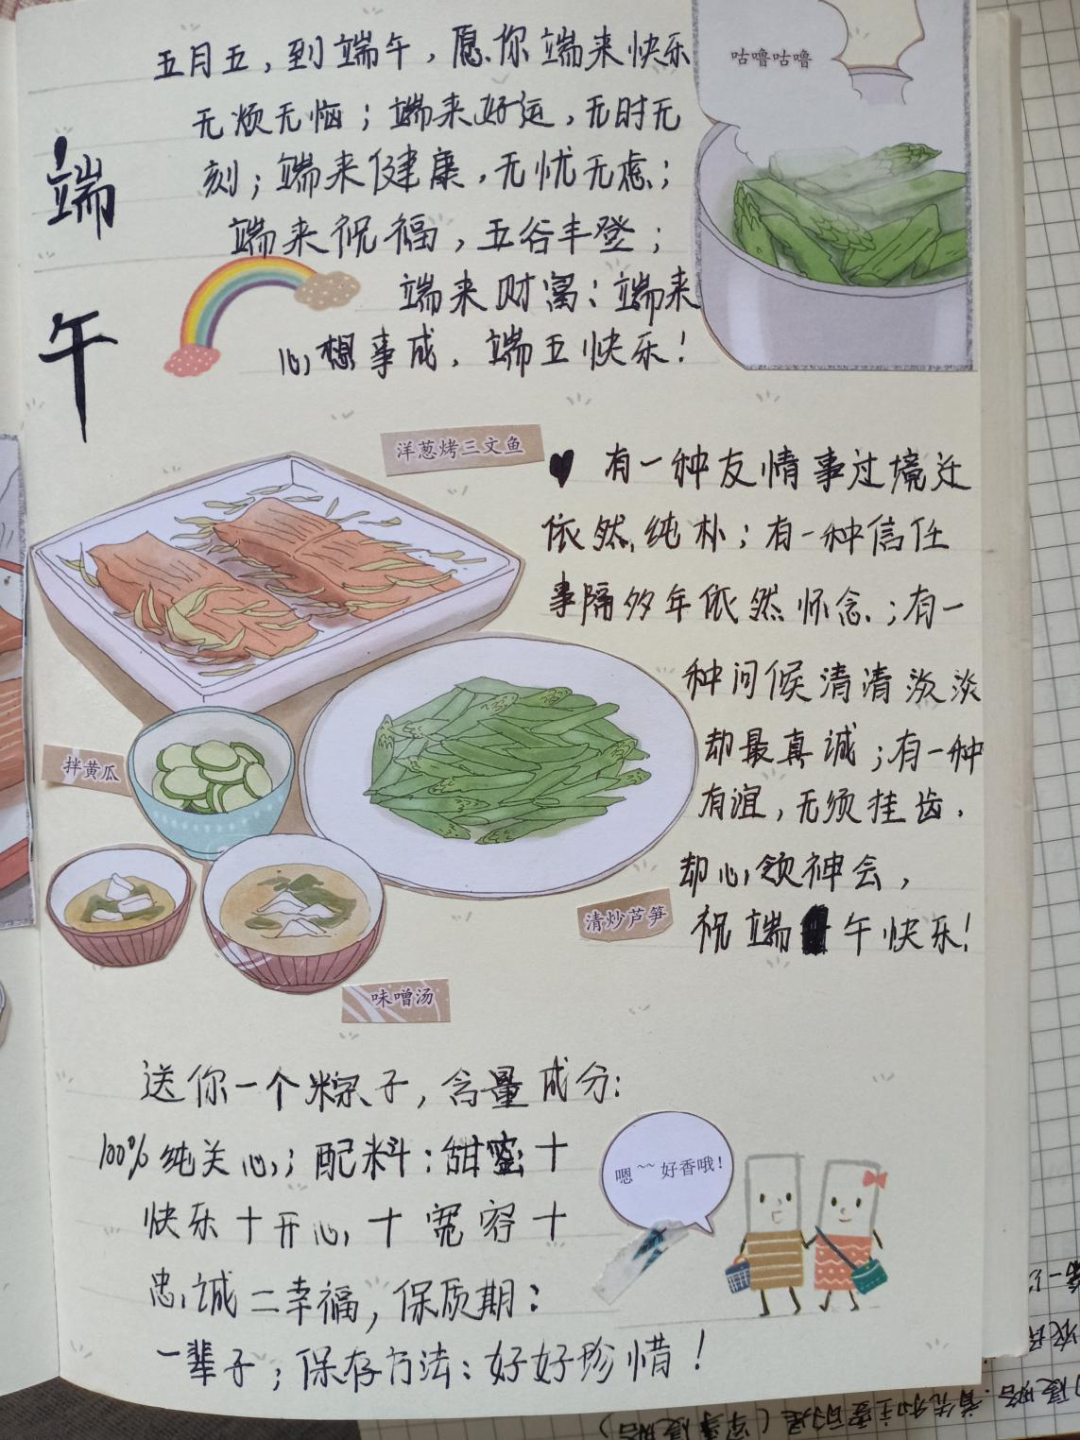 端午
五月五，到端午，愿你端来快乐
无烦无恼；端来好运，无时无
刻；端来健康，无忧无虑；
端来祝福，五谷丰登；
端来财富：端来
心想事成，端五快乐！
咕噜咕噜
洋葱烤三文鱼
♥ 有一种友情事过境迁
依然纯朴；有一种信任
事隔多年依然怀念；有一
种问候清清淡淡
却最真诚；有一种
友谊，无须挂齿，
却心领神会，
祝端午快乐！
拌黄瓜
清炒芦笋
味噌汤
送你一个粽子，含量成分：
100%纯关心；配料：甜蜜+
快乐+开心+宽容+
忠诚二幸福，保质期：
一辈子；保存方法：好好珍惜！
嗯~~好香哦！